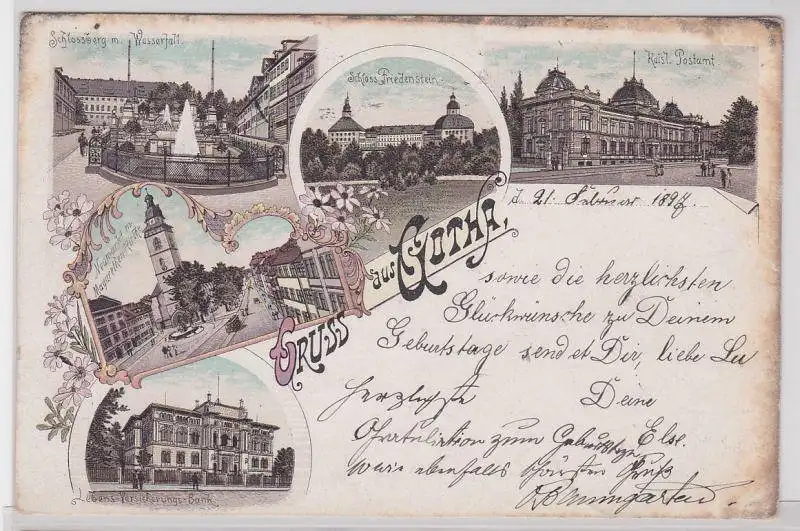 Schlossberg m. Wasserfall.
Schloss Friedenstein.
Kaisl. Postamt
Neumarkt m.
Margarethenkirche.
Gruss aus Gotha,
d. 21. Februar 1897
sowie die herzlichsten
Glückwünsche zu Deinem
Geburtstage sendet Dir, liebe Lu
Deine
Else.
Herzlichste
Gratulation zum Geburtstage
sowie ebenfalls schönsten Gruß
Baumgarten
Lebens-Versicherungs-Bank.